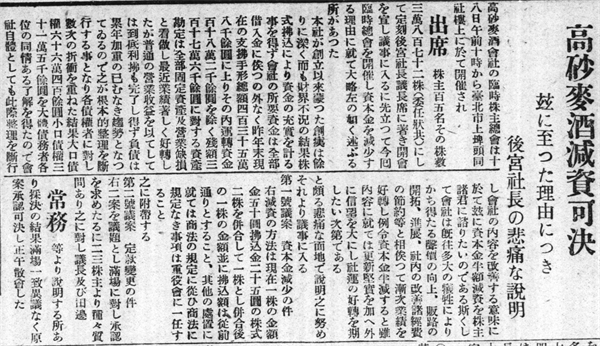 高砂麥酒減資可決
玆に至つた理由につき
後宮社長の悲痛な說明
高砂麥酒會社の臨時株主總會は十
八日午前十時から臺北市上埤頭同
社樓上に於て開催され
出席 株主百五名その株數
三萬八百七十二株(委任狀共)にし
て定刻後宮社長議長席に著き開會
を宣し議事に入るに先立つて今回
臨時總會を開催し資本金を減ずる
る理由に就て大略左の如く述ぶる
所があつた
本社が創立以來蒙つた創痍は餘
りに深く而も財界不況の結果株
式拂込により資金の充實を計る
事を得ず會社の所要資金は全部
借入金に俟つの外なく昨年末現
在の支拂手形總額四百三十五萬
八千餘圓に上りその內運轉資金
百十八萬二千餘圓を除く殘額三
百十七萬六千餘圓に對する資產
勘定は全部固定資產及營業缺損
と看做し最近業績著しく好轉し
たが普通の營業收益を以てして
は到底利拂も完了し得ず負債は
累年加重の已むなき趨勢となつ
てゐるので之が根本的整理を斷
行する事となり各債權者に對し
數次の折衝を重ねた結果大口債
權六十六萬四百餘圓小口債權三
十一萬五千餘圓を大體債務者各
位の同情ある了解を得たので會
社自體としても此際整理を斷行
し會社の內容を改善する意味に
於て玆に資本金半額減資を株主
諸君に諮りたいのである斯くし
て會社は旣往多大の犧牲により
かち得たる聲價の向上、販路の
開拓、進展、社內の改善諸經費
の節約等と相俟つて漸次業績を
好轉し例令資本金は減ずると雖
內容に於ては更新堅實を加へ外
に信望を大にし社運の好轉を期
したい次第である
と頗る悲痛な面地で說明之に努め
それより議事に入る
第一號議案 資本金減少の件
右減資の方法は現在一株の金額
金五十圓拂込金二十五圓の株式
二株を倂合して一株とし倂合後
の一株の金額並に拂込額は從前
通りとすること、其他の處置に
就ては商法の規定に從ひ商法に
規定なき事項は重役會に一任す
之に附帶する
第二號議案 定款變更の件
右二案を議題として滿場に對し承認
を求めたるに二三株主より種々質
問あり之に對し議長及び田邊
常務 等より說明する所あ
り採決の結果滿場一致異議なく原
案承認可決し正午散會した